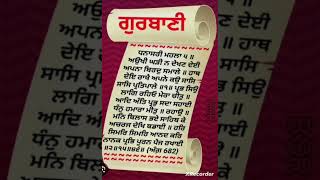 ਗੁਰਬਾਣੀ
ਧਨਾਸਰੀ ਮਹਲਾ ੫ ॥
ਅਉਖੀ ਘੜੀ ਨ ਦੇਖਣ ਦੇਈ
ਅਪਨਾ ਬਿਰਦੁ ਸਮਾਲੇ ॥ ਹਾਥ
ਦੇਇ ਰਾਖੈ ਅਪਨੇ ਕਉ ਸਾਸਿ
ਸਾਸਿ ਪ੍ਰਤਿਪਾਲੇ ॥੧॥ ਪ੍ਰਭ ਸਿਉ
ਲਾਗਿ ਰਹਿਓ ਮੇਰਾ ਚੀਤੁ ॥
ਆਦਿ ਅੰਤਿ ਪ੍ਰਭੁ ਸਦਾ ਸਹਾਈ
ਧੰਨੁ ਹਮਾਰਾ ਮੀਤੁ ॥ ਰਹਾਉ ॥
ਮਨਿ ਬਿਲਾਸ ਭਏ ਸਾਹਿਬ ਕੇ
ਅਚਰਜ ਦੇਖਿ ਬਡਾਈ ॥ ਹਰਿ
ਸਿਮਰਿ ਸਿਮਰਿ ਆਨਦ ਕਰਿ
ਨਾਨਕ ਪ੍ਰਭਿ ਪੂਰਨ ਪੈਜ ਰਖਾਈ
॥੨॥੧੫॥੪੬॥ (ਅੰਗ 682)
XRecorder